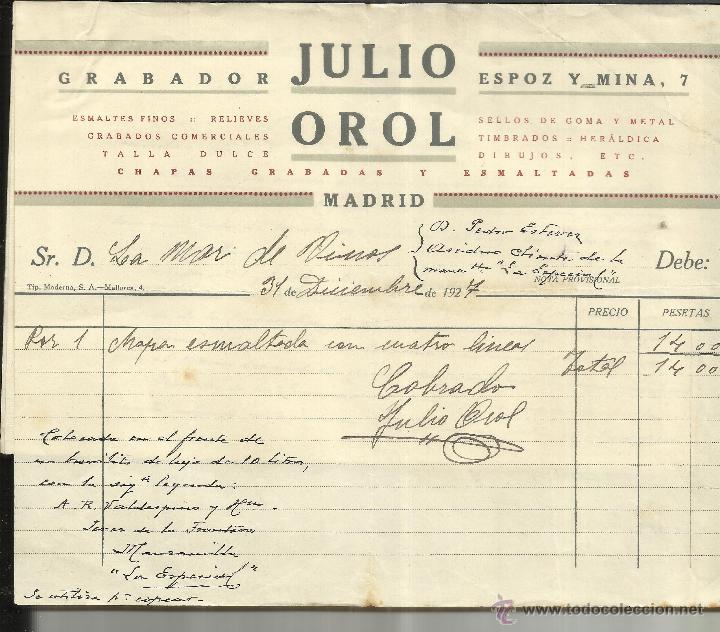 GRABADOR
JULIO OROL
ESPOZ Y MINA, 7
ESMALTES FINOS :: RELIEVES
GRABADOS COMERCIALES
TALLA DULCE
SELLOS DE GOMA Y METAL
TIMBRADOS :: HERÁLDICA
DIBUJOS, ETC.
CHAPAS GRABADAS Y ESMALTADAS
MADRID
D. Pedro Estevez
de la
"La Especial"
Sr. D. La Mar de Vinos
Debe:
NOTA PROVISIONAL
Tip. Moderna, S. A.—Mallorca, 4.
31 de Diciembre de 1927
PRECIO PESETAS
Por 1 chapa esmaltada con cuatro lineas 14 00
Total 14 00
Cobrado
Julio Orol
Colocada en el frente de
un barrilito de lujo de 10 litros,
con la sigte leyenda:
A. R. Valdespino y Hno.
Jerez de la Frontera
Manzanilla
"La Especial"
Se utiliza pa
todocoleccion
www.todocoleccion.net